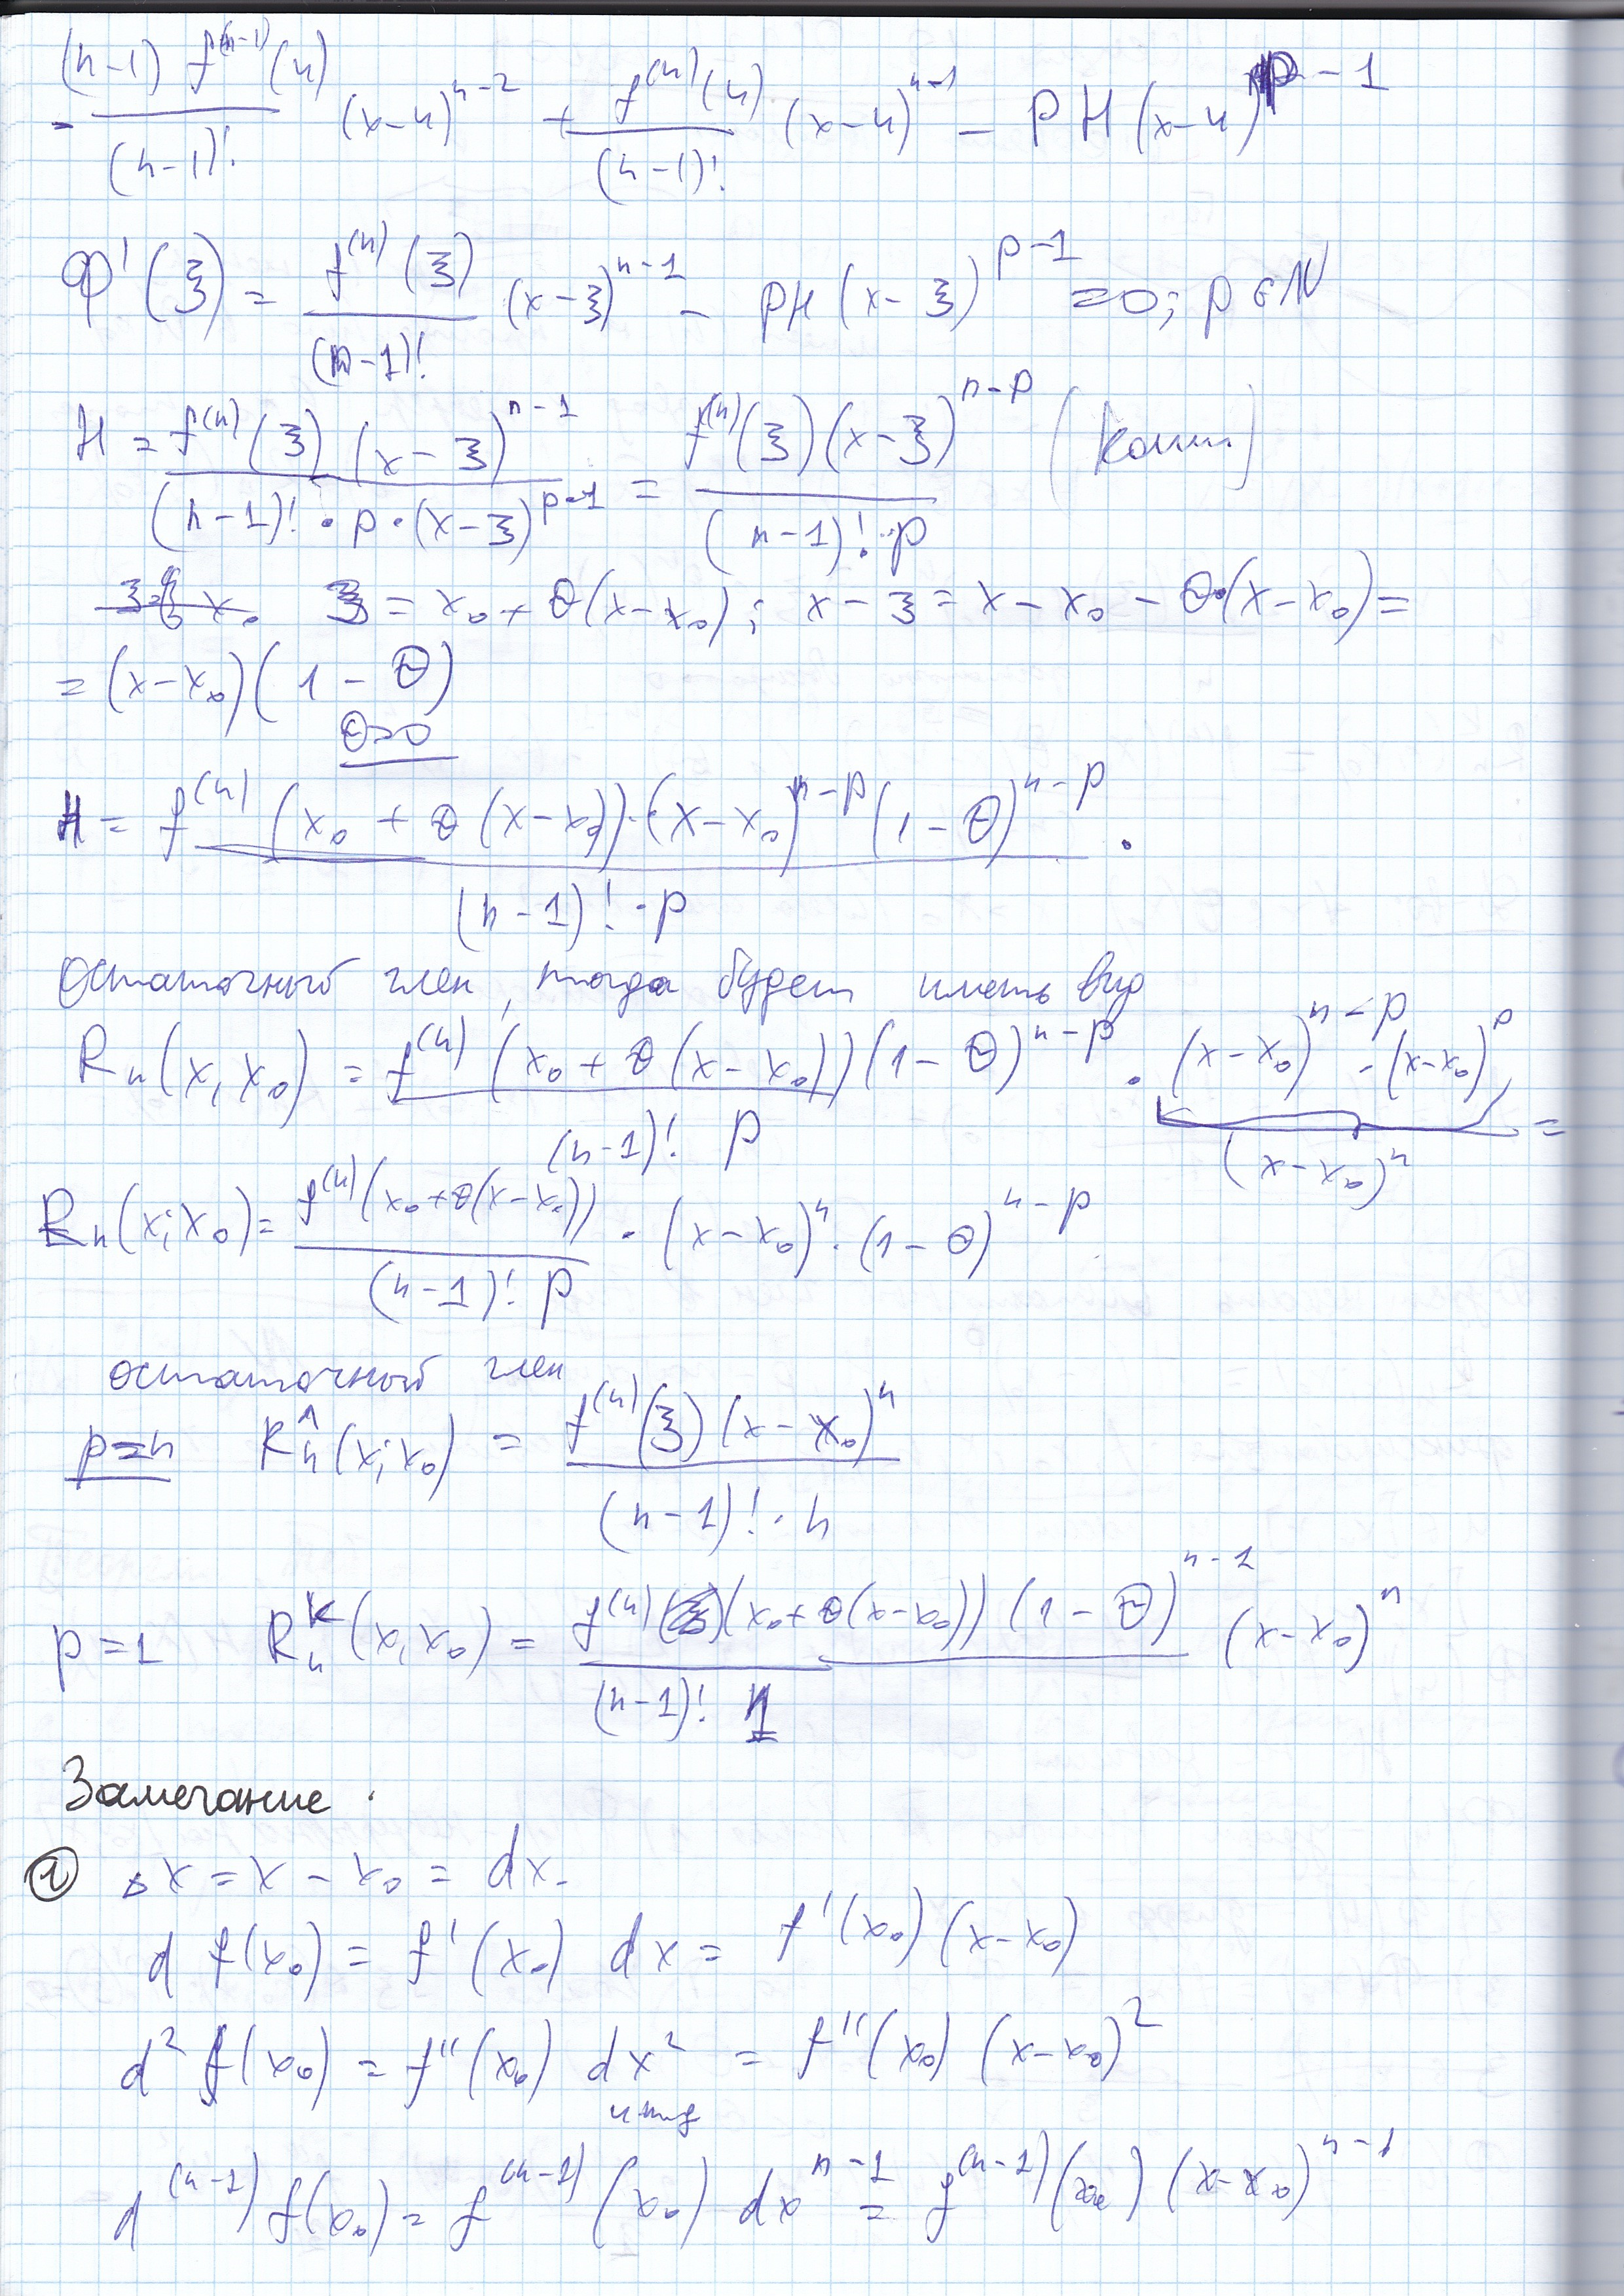 - (n-1) f^(n-1)(u) / (n-1)! (x-u)^n-2 + f^(n)(u) / (n-1)! (x-u)^n-1 - pH(x-u)^p-1
φ'(ξ) = f^(n)(ξ) / (n-1)! (x-ξ)^n-1 - pH(x-ξ)^p-1 = 0; p ∈ N
H = f^(n)(ξ) (x-ξ)^n-1 / (n-1)! · p · (x-ξ)^p-1 = f^(n)(ξ)(x-ξ)^n-p / (n-1)! · p
ξ = x₀ + θ(x-x₀); x-ξ = x-x₀ - θ·(x-x₀) =
= (x-x₀)(1-θ)
θ>0
H = f^(n)(x₀ + θ(x-x₀))·(x-x₀)^n-p (1-θ)^n-p / (n-1)! · p .
Остаточный член, тогда будет иметь вид
Rn(x, x₀) = f^(n)(x₀ + θ(x-x₀))(1-θ)^n-p / (n-1)! p · (x-x₀)^n-p · (x-x₀)^p =
(x-x₀)^n
Rn(x; x₀) = f^(n)(x₀+θ(x-x₀)) / (n-1)! p · (x-x₀)^n · (1-θ)^n-p
остаточный член
p=n Rn^Л(x; x₀) = f^(n)(ξ)(x-x₀)^n / (n-1)! · n
p=1 Rn^K(x, x₀) = f^(n)(x₀+θ(x-x₀))(1-θ)^n-1 / (n-1)! 1 (x-x₀)^n
Замечание.
① Δx = x - x₀ = dx.
d f(x₀) = f'(x₀) dx = f'(x₀)(x-x₀)
d² f(x₀) = f''(x₀) dx² = f''(x₀) (x-x₀)²
и т д
d^(n-1) f(x₀) = f^(n-1)(x₀) dx^n-1 = f^(n-1)(x₀) (x-x₀)^n-1